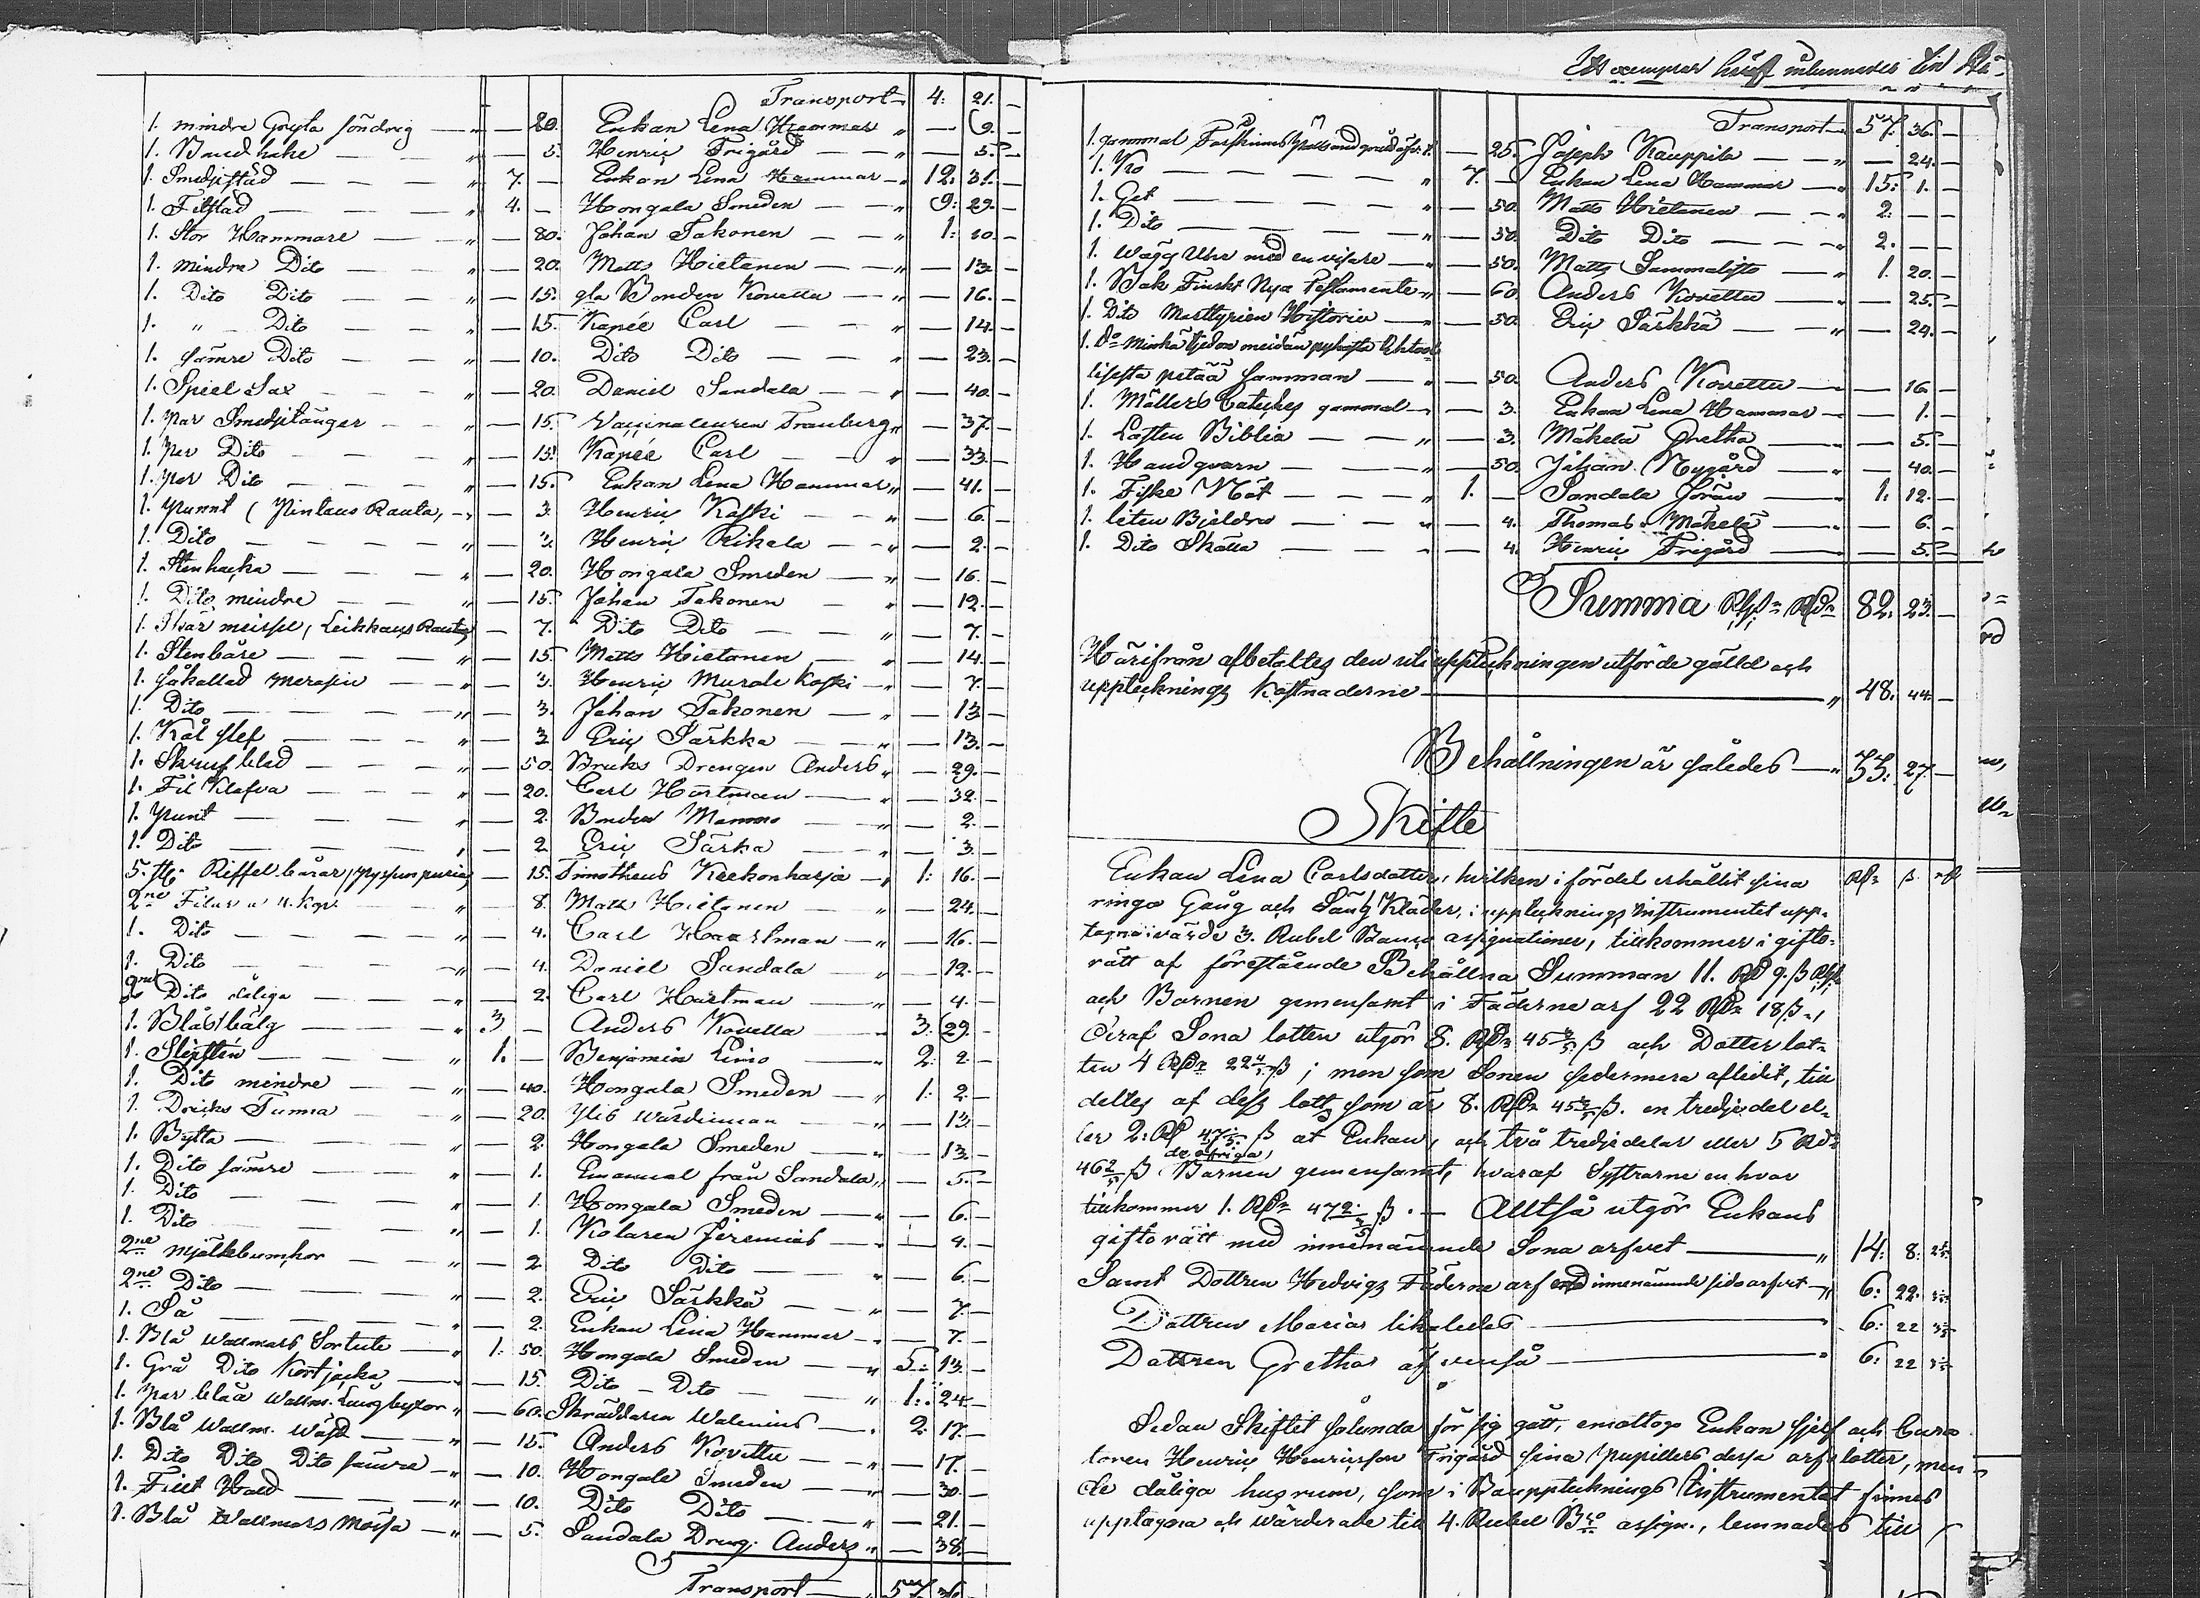 Transport 4: 21. —
1. mindre Gryta söndrig — 20. Enkan Lena Hammar „ — 9. —
1. Baud hake — 5. Henric Frigård — „ — 5. —
1. Smedjestäd „ 7. — Enkan Lena Hammar „ 12. 31. —
1. Filstäd „ 4. — Hongala Smeden „ 9. 29. —
1. Stor Hammare „ — 80. Johan Takonen „ 1. 10. —
1. mindre Dito „ — 20. Matts Hietanen „ — 13. —
1. Dito Dito „ — 15. gla Bonden Kovetta „ — 16. —
1. „ Dito „ — 15. Kapée Carl „ — 14. —
1. sämre Dito „ — 10. Dito Dito „ — 23. —
1. Spiel Sax „ — 20. Daniel Sandala „ — 40. —
1. par Smedjetänger „ — 15. Vaccinateuren Tranberg „ — 37. —
1. par Dito „ — 15. Kapée Carl „ — 33. —
1. par Dito „ — 15. Enkan Lena Hammar „ — 41. —
1. punnt (Pintaus Rauta, — 3. Henric Koski „ — 6. —
1. Dito „ — 3. Henric Rikala „ — 2. —
1. Stenhacka „ — 20. Hongala Smeden „ — 16. —
1. Dito mindre „ — 15. Johan Takonen „ — 12. —
1. Skär meissel, Leikkaus Rauta — 7. Dito Dito „ — 7. —
1. Stenbåre „ — 15. Matts Hietanen „ — 14. —
1. såkallad „ — 3. Henric Koski „ — 7. —
1. Dito „ — 3. Johan Takonen „ — 13. —
1. Kål slef „ — 3. Eric Särkkä „ — 13. —
1. Skruf blad „ — 50. Bruks Drengen Anders „ — 29. —
1. Fil Klafva „ — 20. Carl Hartman „ — 32. —
1. punt „ — 2. Bonden „ — 2. —
1. Dito „ — 2. Eric Särkä „ — 3. —
5. st. Riffel bårar — 15. Timotheus Keckonharja „ 1. 16. —
2ne Filar „ 8. Matts Hietanen „ — 24. —
1. Dito „ — 4. Carl Hartman „ — 16. —
1. Dito „ — 4. Daniel Sandala „ — 12. —
2ne Dito dåliga „ — 2. Carl Hartman „ — 4. —
1. Blåsbälg „ 3 — Anders Kovetta „ 3. 29. —
1. Slipsten „ 1. — Benjamin Leino „ 2. 2. —
1. Dito mindre „ — 40. Hongala Smeden „ 1. 2. —
1. Dricks Tunna „ — 20. „ — 13. —
1. Bytta „ — 2. Hongala Smeden „ — 13. —
1. Dito sämre „ — 1. Emanuel från Sandala „ — 5. —
1. Dito „ — 1. Hongala Smeden „ — 6. —
1. Dito „ — 1. Kolaren Jeremias „ — 4. —
2ne mjölkbumkor „ — 2. Dito Dito „ — 6. —
2ne Dito „ — 2. Eric Särkkä „ — 7. —
1. Så „ — 2. Enkan Lena Hammar „ — 7. —
1. Blå Wallmars Sortute „ 1. 50. Hongala Smeden „ 5. 13. —
1. Grå Dito Kortjacka „ — 15. Dito – Dito „ 1. 24. —
1. par blåa Wallm. Långbyxor „ — 60. Skräddaren Walenius „ 2. 17. —
1. Blå Wallm. Wäst „ — 15. Anders Kovetta „ — 17. —
1. Dito Dito Dito sämre „ — 10. Hongala Smeden „ — 30. —
1. Filt Hatt „ — 10. Dito Dito „ — 21. —
1. Blå Wallmars Mössa „ — 5. Sandala Dreng: Anders „ — 38. —
Transport 57. 36.
Transport 57. 36. —
1. gammal — 25. Joseph Kauppila „ — 24. —
1. Ko „ 7. — Enkan Lena Hammar „ 15. 1. —
1. Get „ — 50. Matts Hietanen „ 2. — —
1. Dito „ — 50. Dito Dito „ 2. — —
1. Wägg Uhr med en visare „ — 50. Matts Sammalisto „ 1. 20. —
1. Bok Finskt Nya Testamente „ — 60. Anders Kovetta „ — 25. —
1. Dito Marttyrien Historia „ — 50. Eric Särkkä „ — 24. —
1. Do Minkä tjedon meidän
lisesta pitää samman „ — 50. Anders Kovetta — 16. —
1. Möllers Cateches gammal „ — 3. Enkan Lena Hammar — 1. —
1. Lasten Biblia „ — 3. Mäkelä Gretha — 5. —
1. Handqvarn „ — 50. Johan Nygård — 40. —
1. Fiske Nöt „ 1. — Sandala Jöran 1. 12. —
1. liten Bjeldra „ — 4. Thomas Mäkelä — 6. —
1. Dito Skälla „ — 4. Henric Frigård — 5. —
Summa 82. 23. —
Härifrån afbetaltes den uti uppteckningen utförde gälld och
upptecknings kostnaderne „ 48. 44. —
Behållningen är således „ 33. 27. —
Skifte
Enkan Lena Carlsdotter, hvilken i fördel erhållit sina
ringa Gång och Säng Kläder, i upptecknings Instrumentet upp-
tagna i värde 3. Rubel Banco assignationer, tillkommer i gifto-
rätt af förestående Behållna Summan 11. Rd 9. ß
och Barnen gemensamt i Fäderne arf 22 Rd 18 ß,
deraf Sona lotten utgör 8. Rd 45 3/5 ß och Dotter lot-
ten 4 Rd 22 4/5 ß; men som Sonen sedermera aflidit, till
deltes af dess lott som är 8. Rd 45 3/5 ß. en tredjedel el-
ler 2. Rd 47 1/5 ß åt Enkan, och två tredjedelar eller 5 Rd
46 2/5 ß de öfriga Barnen gemensamt, hvaraf Systrarne en hvar
tillkommer 1. Rd 47 ß. — Alltså utgör Enkans
giftorätt med innenämnde Sona arfvet „ 14. 8.
Samt Dottren Hedvigs Fäderne arf med innenämnde sidoarfvet „ 6. 22.
Dottren Marias likaledes „ 6. 22
Dottren Grethas äfvenså „ 6. 22
Sedan Skiftet sålunda för sig gått, emottog Enkan sjelf och Cura
toren Henric Henricsson Frigård sina pupillers dessa arfslotter, men
de dåliga husrum, som i Bouppteknings Instrumentet finnes
upptagna och wärderade till 4. Rubel Bco assign., lemnades till